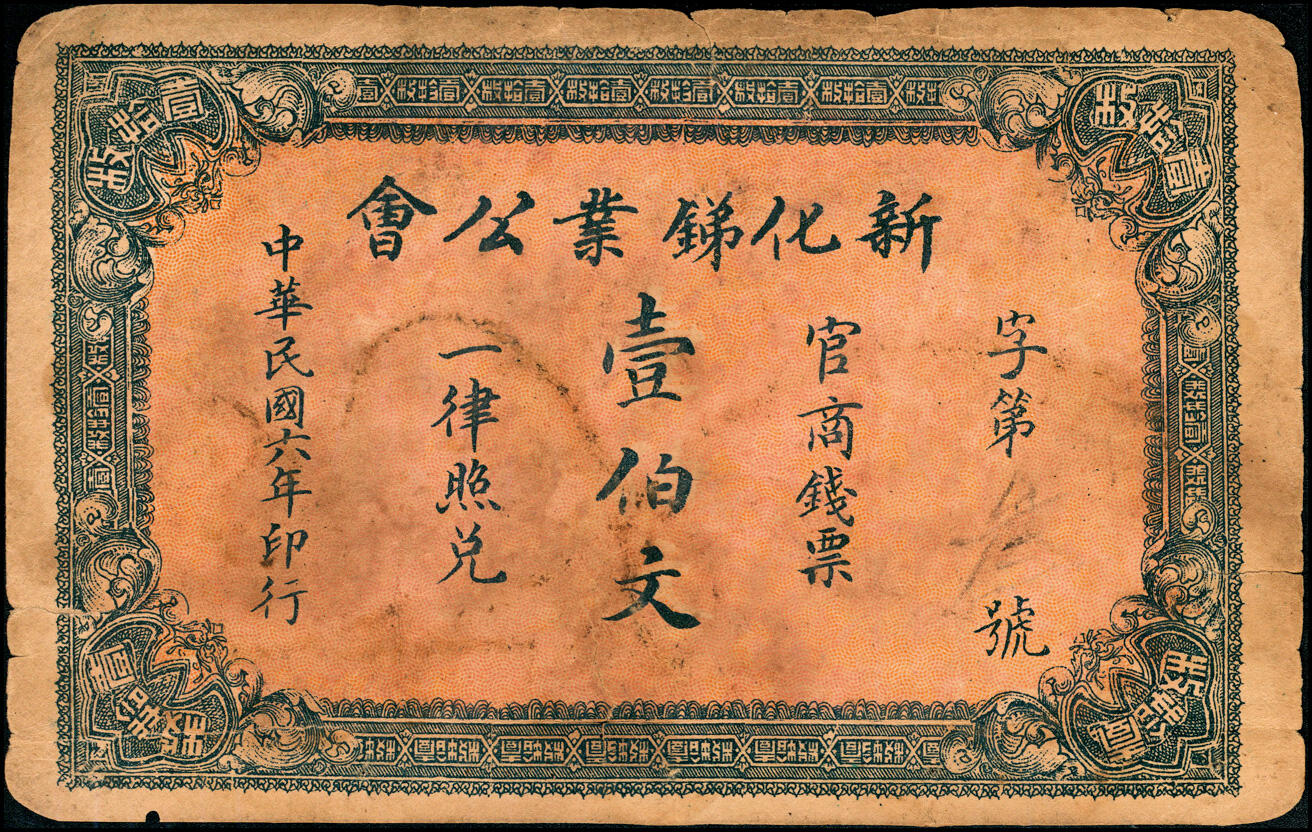 新化銻業公會
字第 號
官商錢票
壹伯文
一律照兌
中華民國六年印行